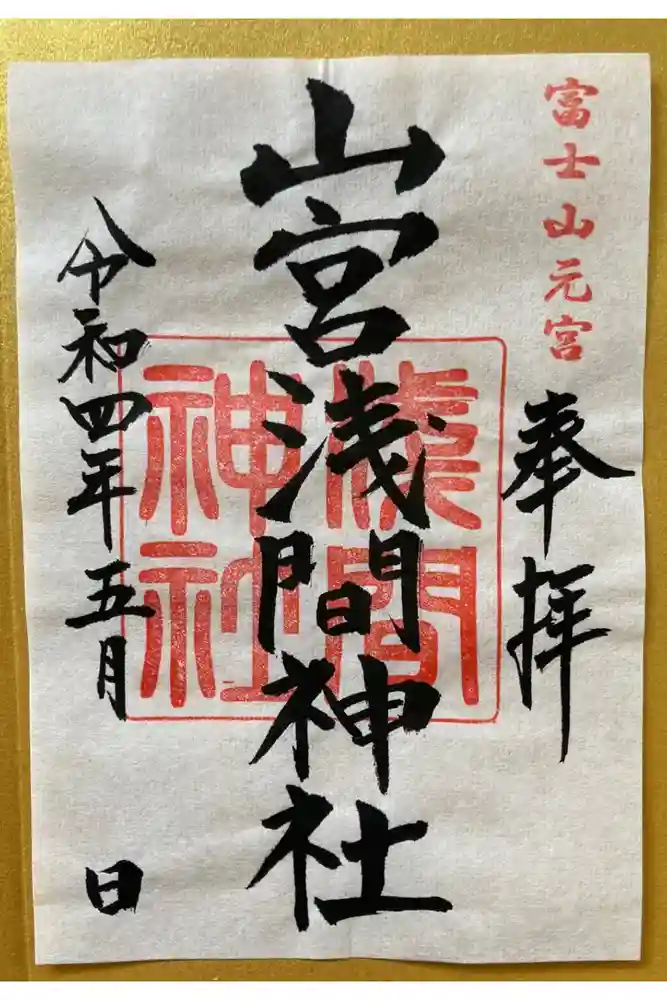 富士山元宮
奉拝
山宮浅間神社
淺間
神社
令和四年五月　日